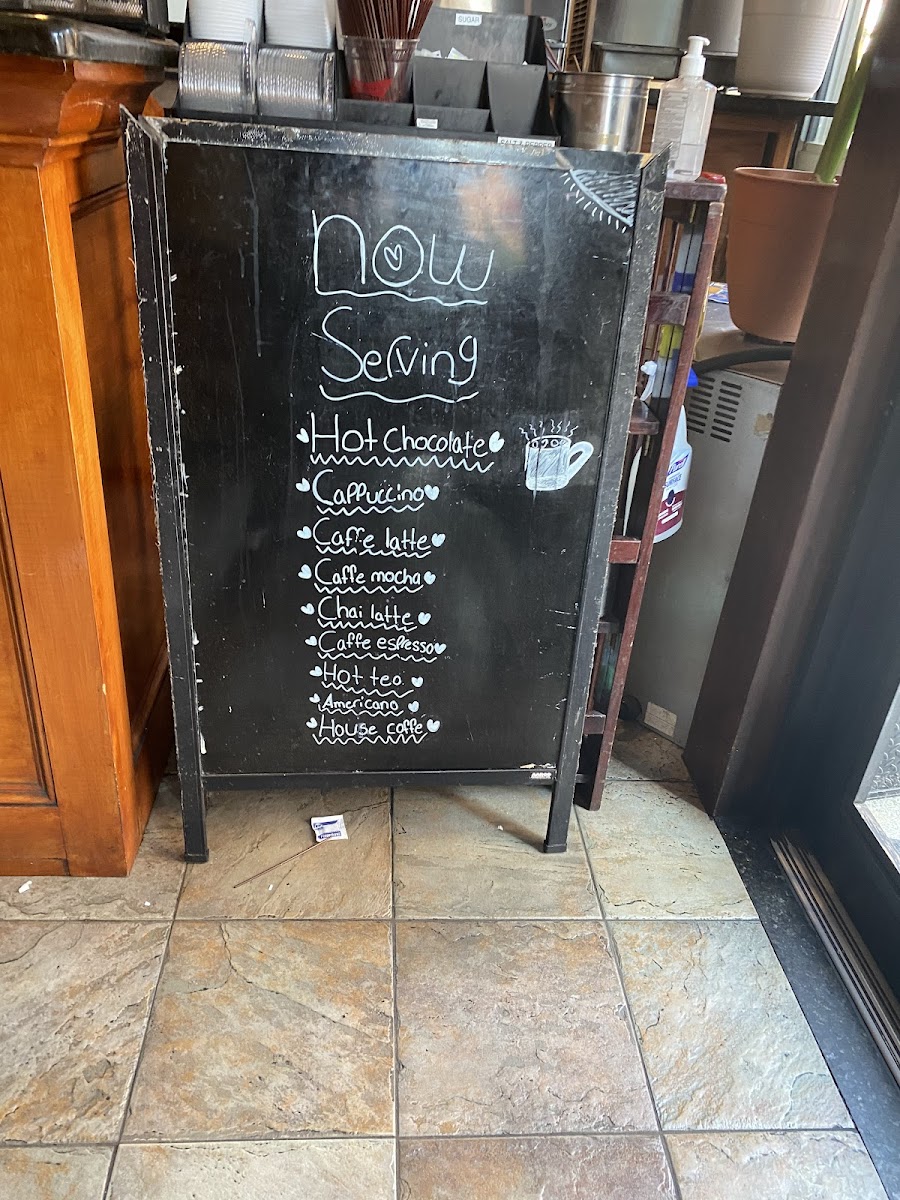 SUGAR
now
Serving
Hot Chocolate
Cappuccino
Caffe latte
Caffe mocha
Chai latte
Caffe espresso
Hot teo
Americano
House caffe